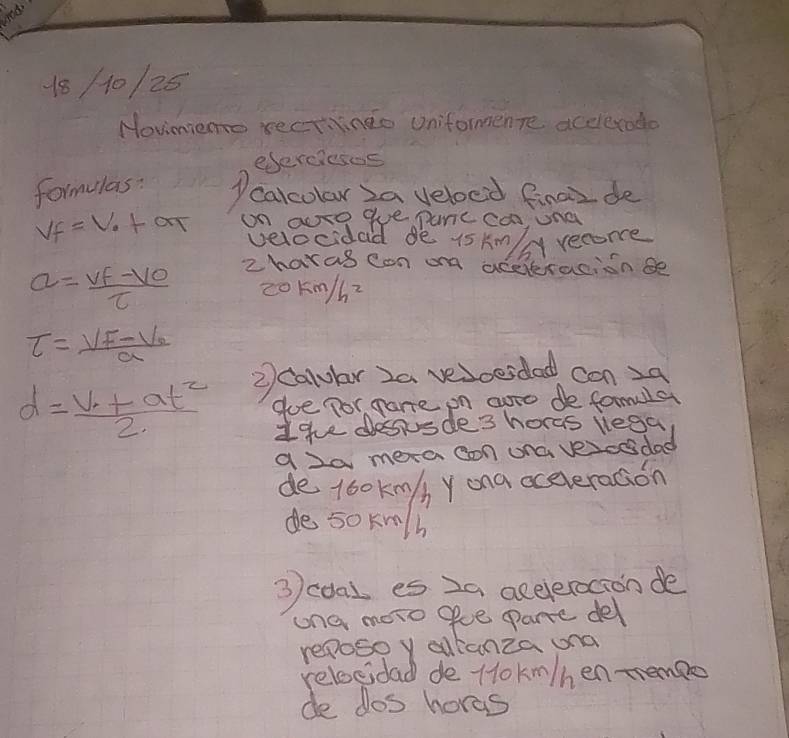 18/10/25
Movimiento rectilineo uniformente acelerado
esercicsos
formulas:
Vf = V. + at
a = Vf - VO
t
t = VF - V.
a
d = V. + at²
2.
1) calcolar la velocid final de
un auto que parte con una
velocidad de 15 km/h y recorre
2 haras con una aceleración de
20 km/h²
2) calular la velocidad con la
que por parte un auto de formula
1 que despus de 3 horas llega
a la mera con una velocidad
de 160 km/h y una aceleración
de 50 km/h
3) cual es la aceleración de
una moto que parte del
reposo y alcanza una
velocidad de 110 km/h en tiempo
de dos horas